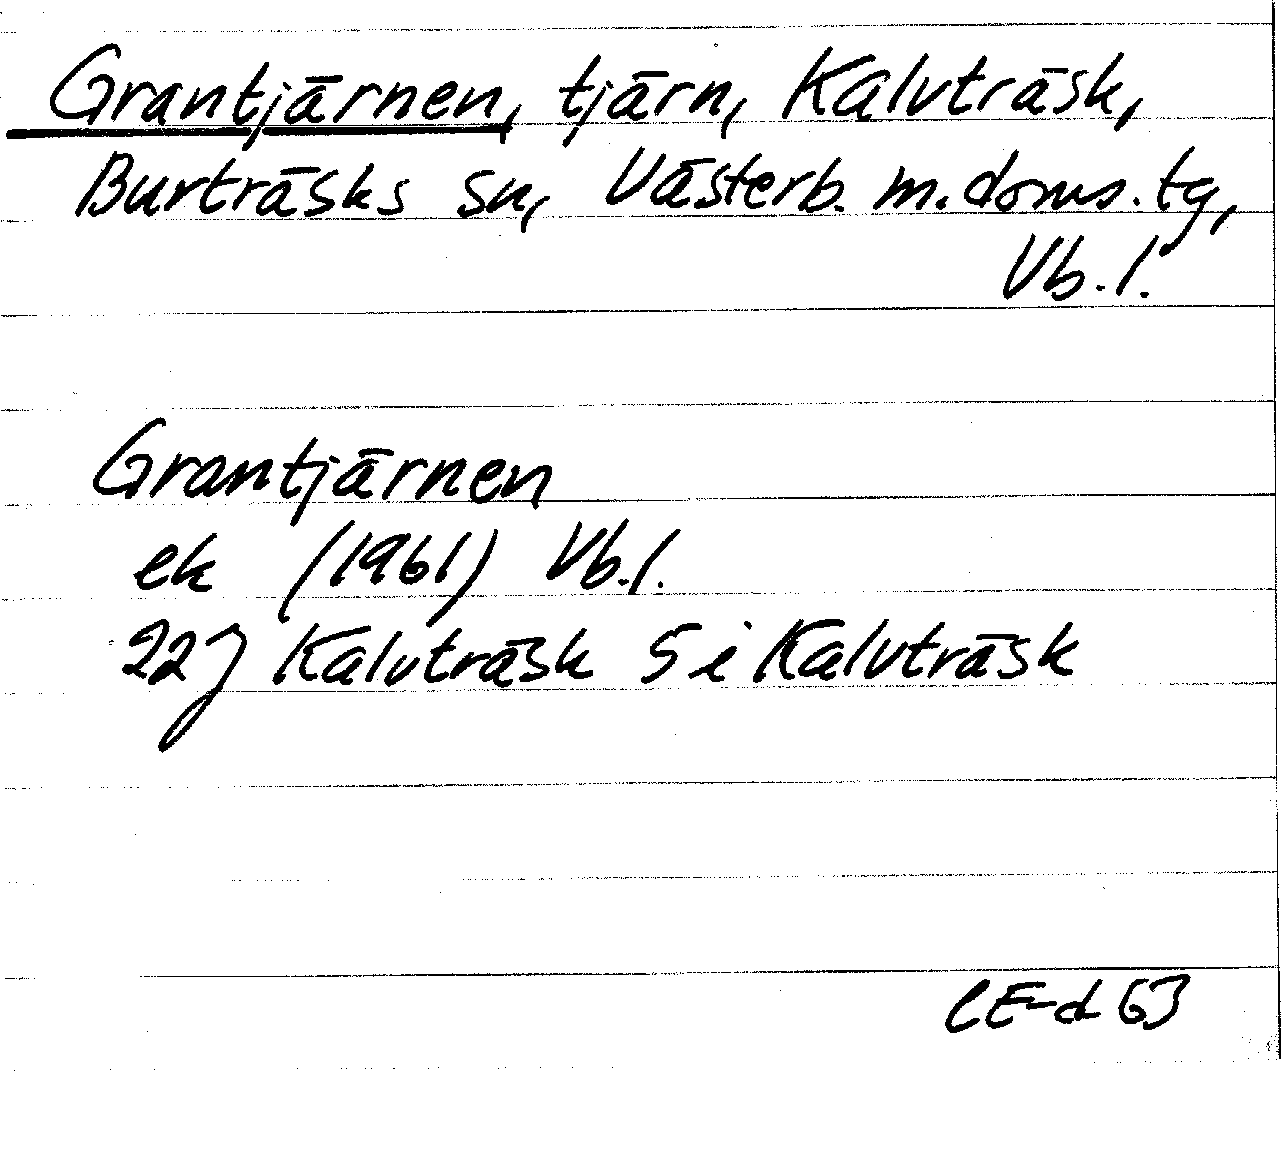 Grantjärnen, tjärn, Kalvträsk,
Burträsks sn, Västerb. m. doms. tg,
Vb. l.
Grantjärnen
ek (1961) Vb. l.
22J Kalvträsk S i Kalvträsk
CE-d 63